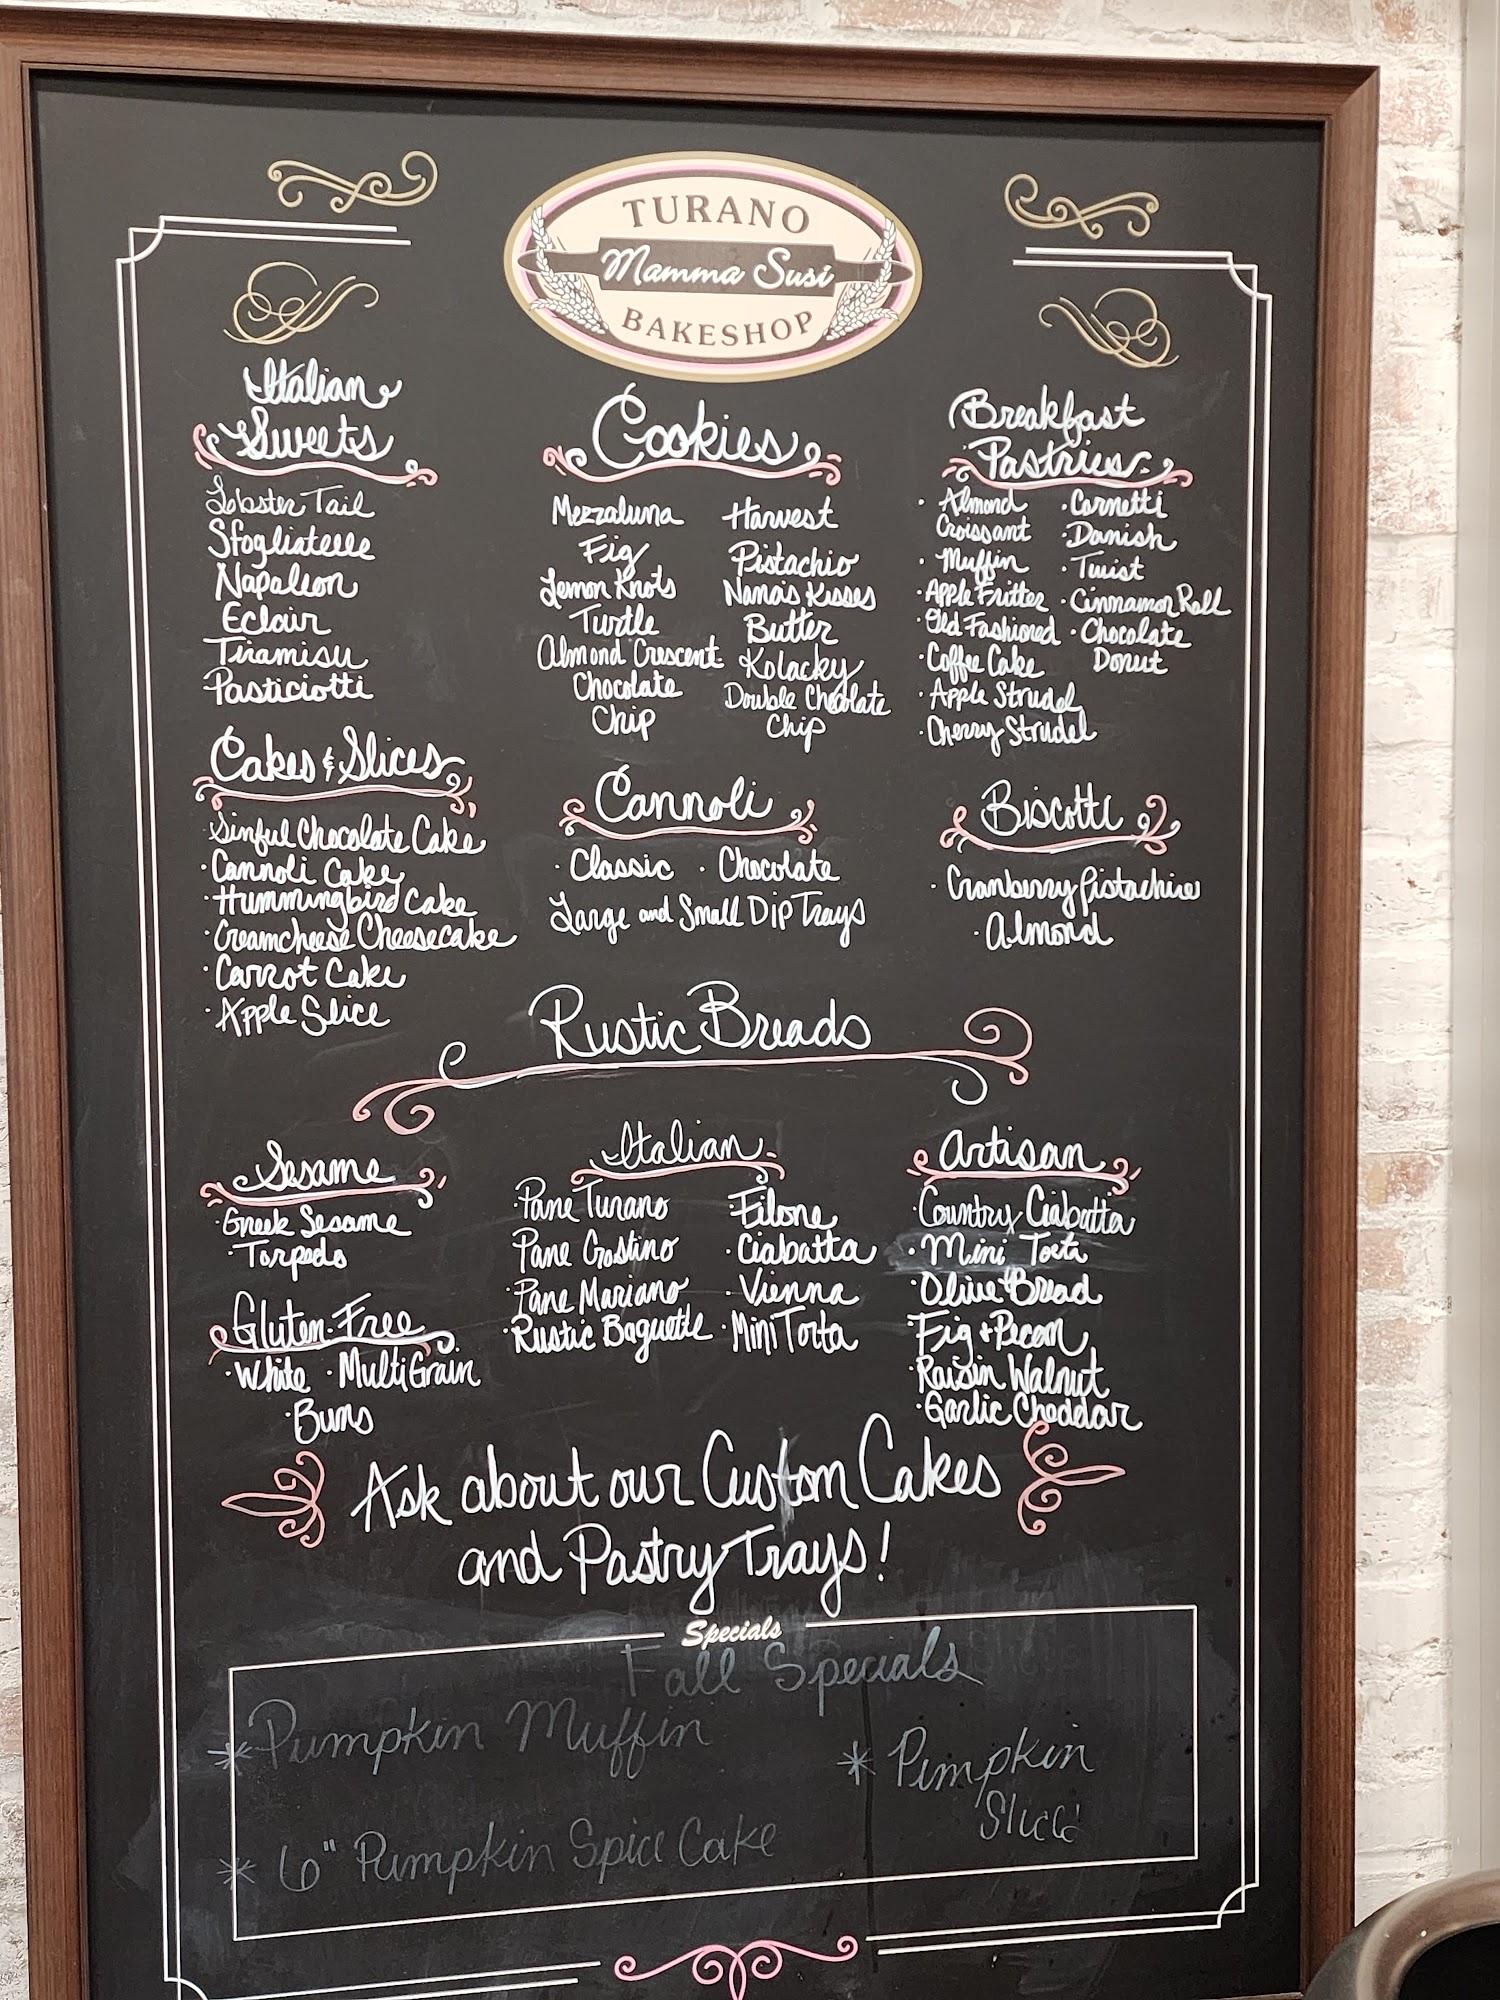 TURANO
Mamma Susi
BAKESHOP
Italian
Sweets
Lobster Tail
Sfogliatelle
Napoleon
Eclair
Tiramisu
Pasticiotti
Cakes & Slices
Sinful Chocolate Cake
· Cannoli Cake
· Hummingbird Cake
· Creamcheese Cheesecake
· Carrot Cake
· Apple Slice
Cookies
Mezzaluna
Fig
Lemon Knots
Turtle
Almond Crescent
Chocolate
Chip
Harvest
Pistachio
Nana's Kisses
Butter
Kolacky
Double Chocolate
Chip
Cannoli
· Classic · Chocolate
Large and Small Dip Trays
Breakfast
Pastries
· Almond
Croissant
· Muffin
· Apple Fritter
· Old Fashioned
· Coffee Cake
· Apple Strudel
· Cherry Strudel
· Cornetti
· Danish
· Twist
· Cinnamon Roll
· Chocolate
Donut
Biscotti
· Cranberry Pistachio
· Almond
Rustic Breads
Sesame
· Greek Sesame
· Torpedo
Gluten-Free
· White · MultiGrain
· Buns
Italian
· Pane Turano
Pane Crostino
· Pane Mariano
· Rustic Baguette
· Filone
· Ciabatta
· Vienna
· Mini Torta
Artisan
· Country Ciabatta
· Mini Torta
· Olive Bread
Fig + Pecan
· Raisin Walnut
· Garlic Cheddar
Ask about our Custom Cakes
and Pastry Trays!
Specials
Fall Specials
* Pumpkin Muffin
* 6" Pumpkin Spice Cake
* Pumpkin
Slice